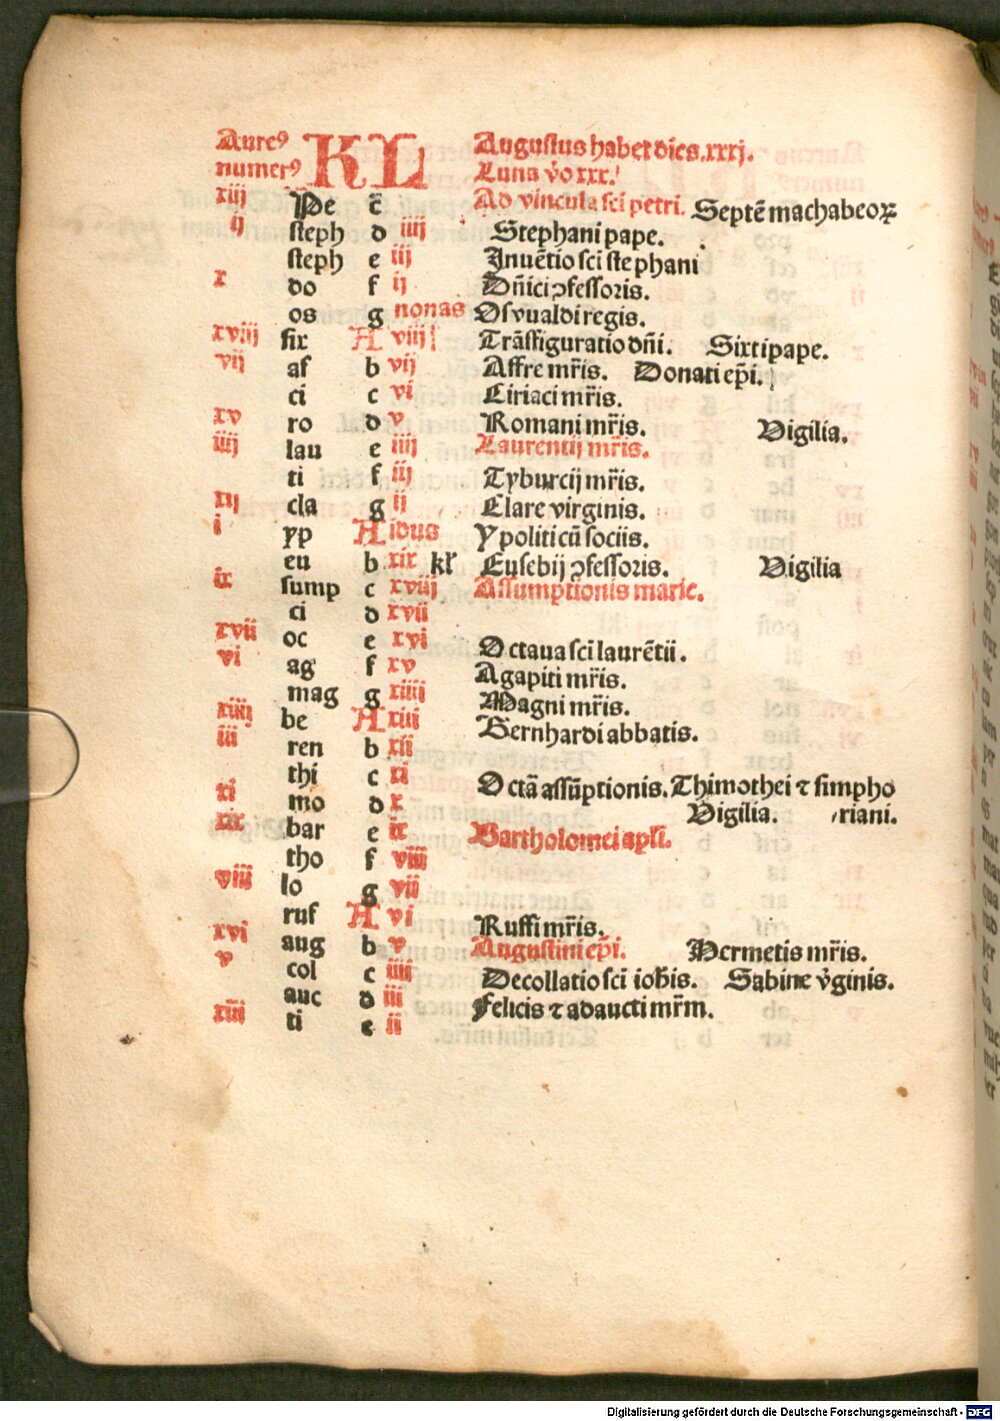 Aureꝰ KL Augustus habet dies.xxxj.
numerꝰ Luna v̇o xxx.
xiij Pe c̄ Ad vincula sci petri. Septē machabeoꝝ
ij steph d iiij Stephani pape.
steph e iij Inuētio sci stephani
x do f ij Dn̄ici ꝯfessoris.
os g nonas Osvualdi regis.
xviij six A viij Trāsfiguratio dn̄i. Sixti pape.
vij af b vij Affre mr̄is. Donati ep̄i.
ci c vi Ciriaci mr̄is.
xv ro d v Romani mr̄is. Vigilia.
iiij lau e iiij Laurentij mr̄is.
ti f iij Tyburcij mr̄is.
xij cla g ij Clare virginis.
i yp A idus Ypoliti cū sociis.
eu b xix kł Eusebij ꝯfessoris. Vigilia
ix sump c xviij Assumptionis marie.
ci d xvii
xvii oc e xvi Octaua sci laurētii.
vi ag f xv Agapiti mr̄is.
mag g xiiij Magni mr̄is.
xiiij be A xiii Bernhardi abbatis.
iii ren b xii
thi c xi Octā assūptionis. Thimothei ⁊ simpho
xi mo d x Vigilia. riani.
xix bar e ix Bartholomei apł̄i.
tho f viii
viii lo g vii
ruf A vi Ruffi mr̄is.
xvi aug b v Augustini ep̄i. Hermetis mr̄is.
v col c iiii Decollatio sci ioh̄is. Sabine v̇ginis.
auc d iii Felicis ⁊ adaucti mr̄m.
xiii ti e ii
Digitalisierung gefördert durch die Deutsche Forschungsgemeinschaft - DFG